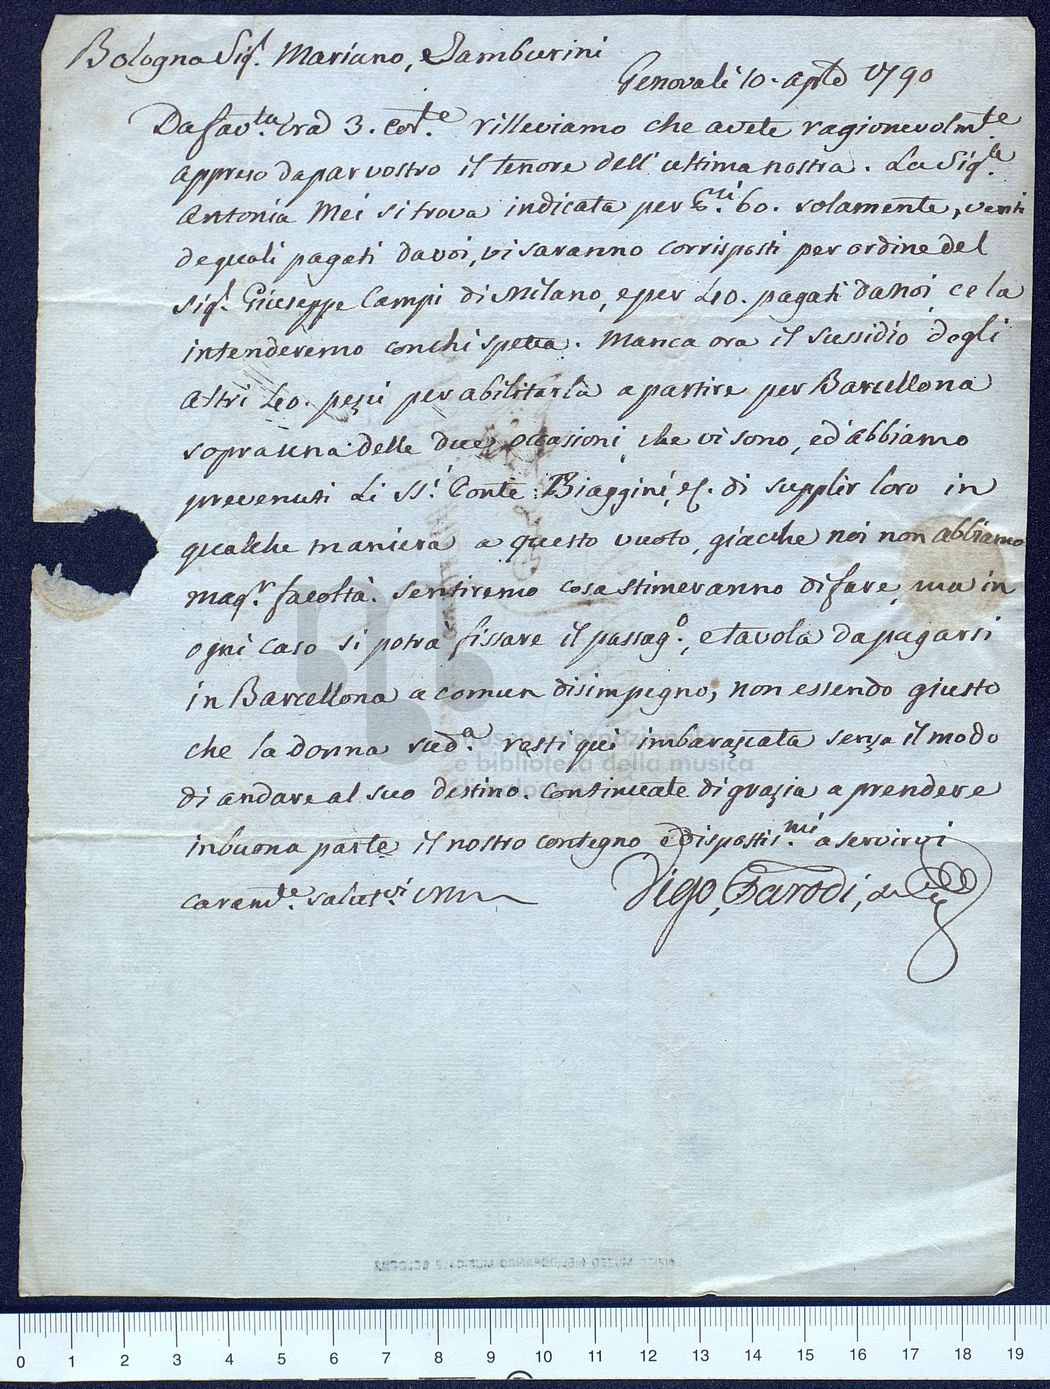 Bologna Sig.r Mariano, Tamburini
Genova li 10. Aple 1790
Da fav.ta vra 3. cor.e rilleviamo che avete ragionevolmte
appreso da par vostro il tenore dell' ultima nostra. La Sig.la
Antonia Mei si trova indicata per 60. solamente, venti
de quali pagati da voi, vi saranno corrisposti per ordine del
Sig.r Giuseppe Campi di Milano, e per 40. pagati da noi, ce la
intenderemo con chi spetta. Manca ora il sussidio degli
altri 40. pezzi per abilitarla a partire per Barcellona
sopra una delle due occasioni, che vi sono, ed' abbiamo
prevenuti li SS.i Conte Biaggini, e C. di supplir loro in
qualche maniera a questo vuoto, giacche noi non abbiamo
mag.r facoltà. Sentiremo cosa stimeranno di fare, ma in
ogni caso si potra fissare il passag.o, e tavola da pagarsi
in Barcellona a comun disimpegno, non essendo giusto
che la donna sud.a resti qui imbarazzata senza il modo
di andare al suo destino. Continuate di grazia a prendere
in buona parte il nostro contegno e dispostis.mi a servirvi
caram.te salut.vi
Vigo, Parodi,
museo internazionale
e biblioteca della musica
di bologna
0 1 2 3 4 5 6 7 8 9 10 11 12 13 14 15 16 17 18 19